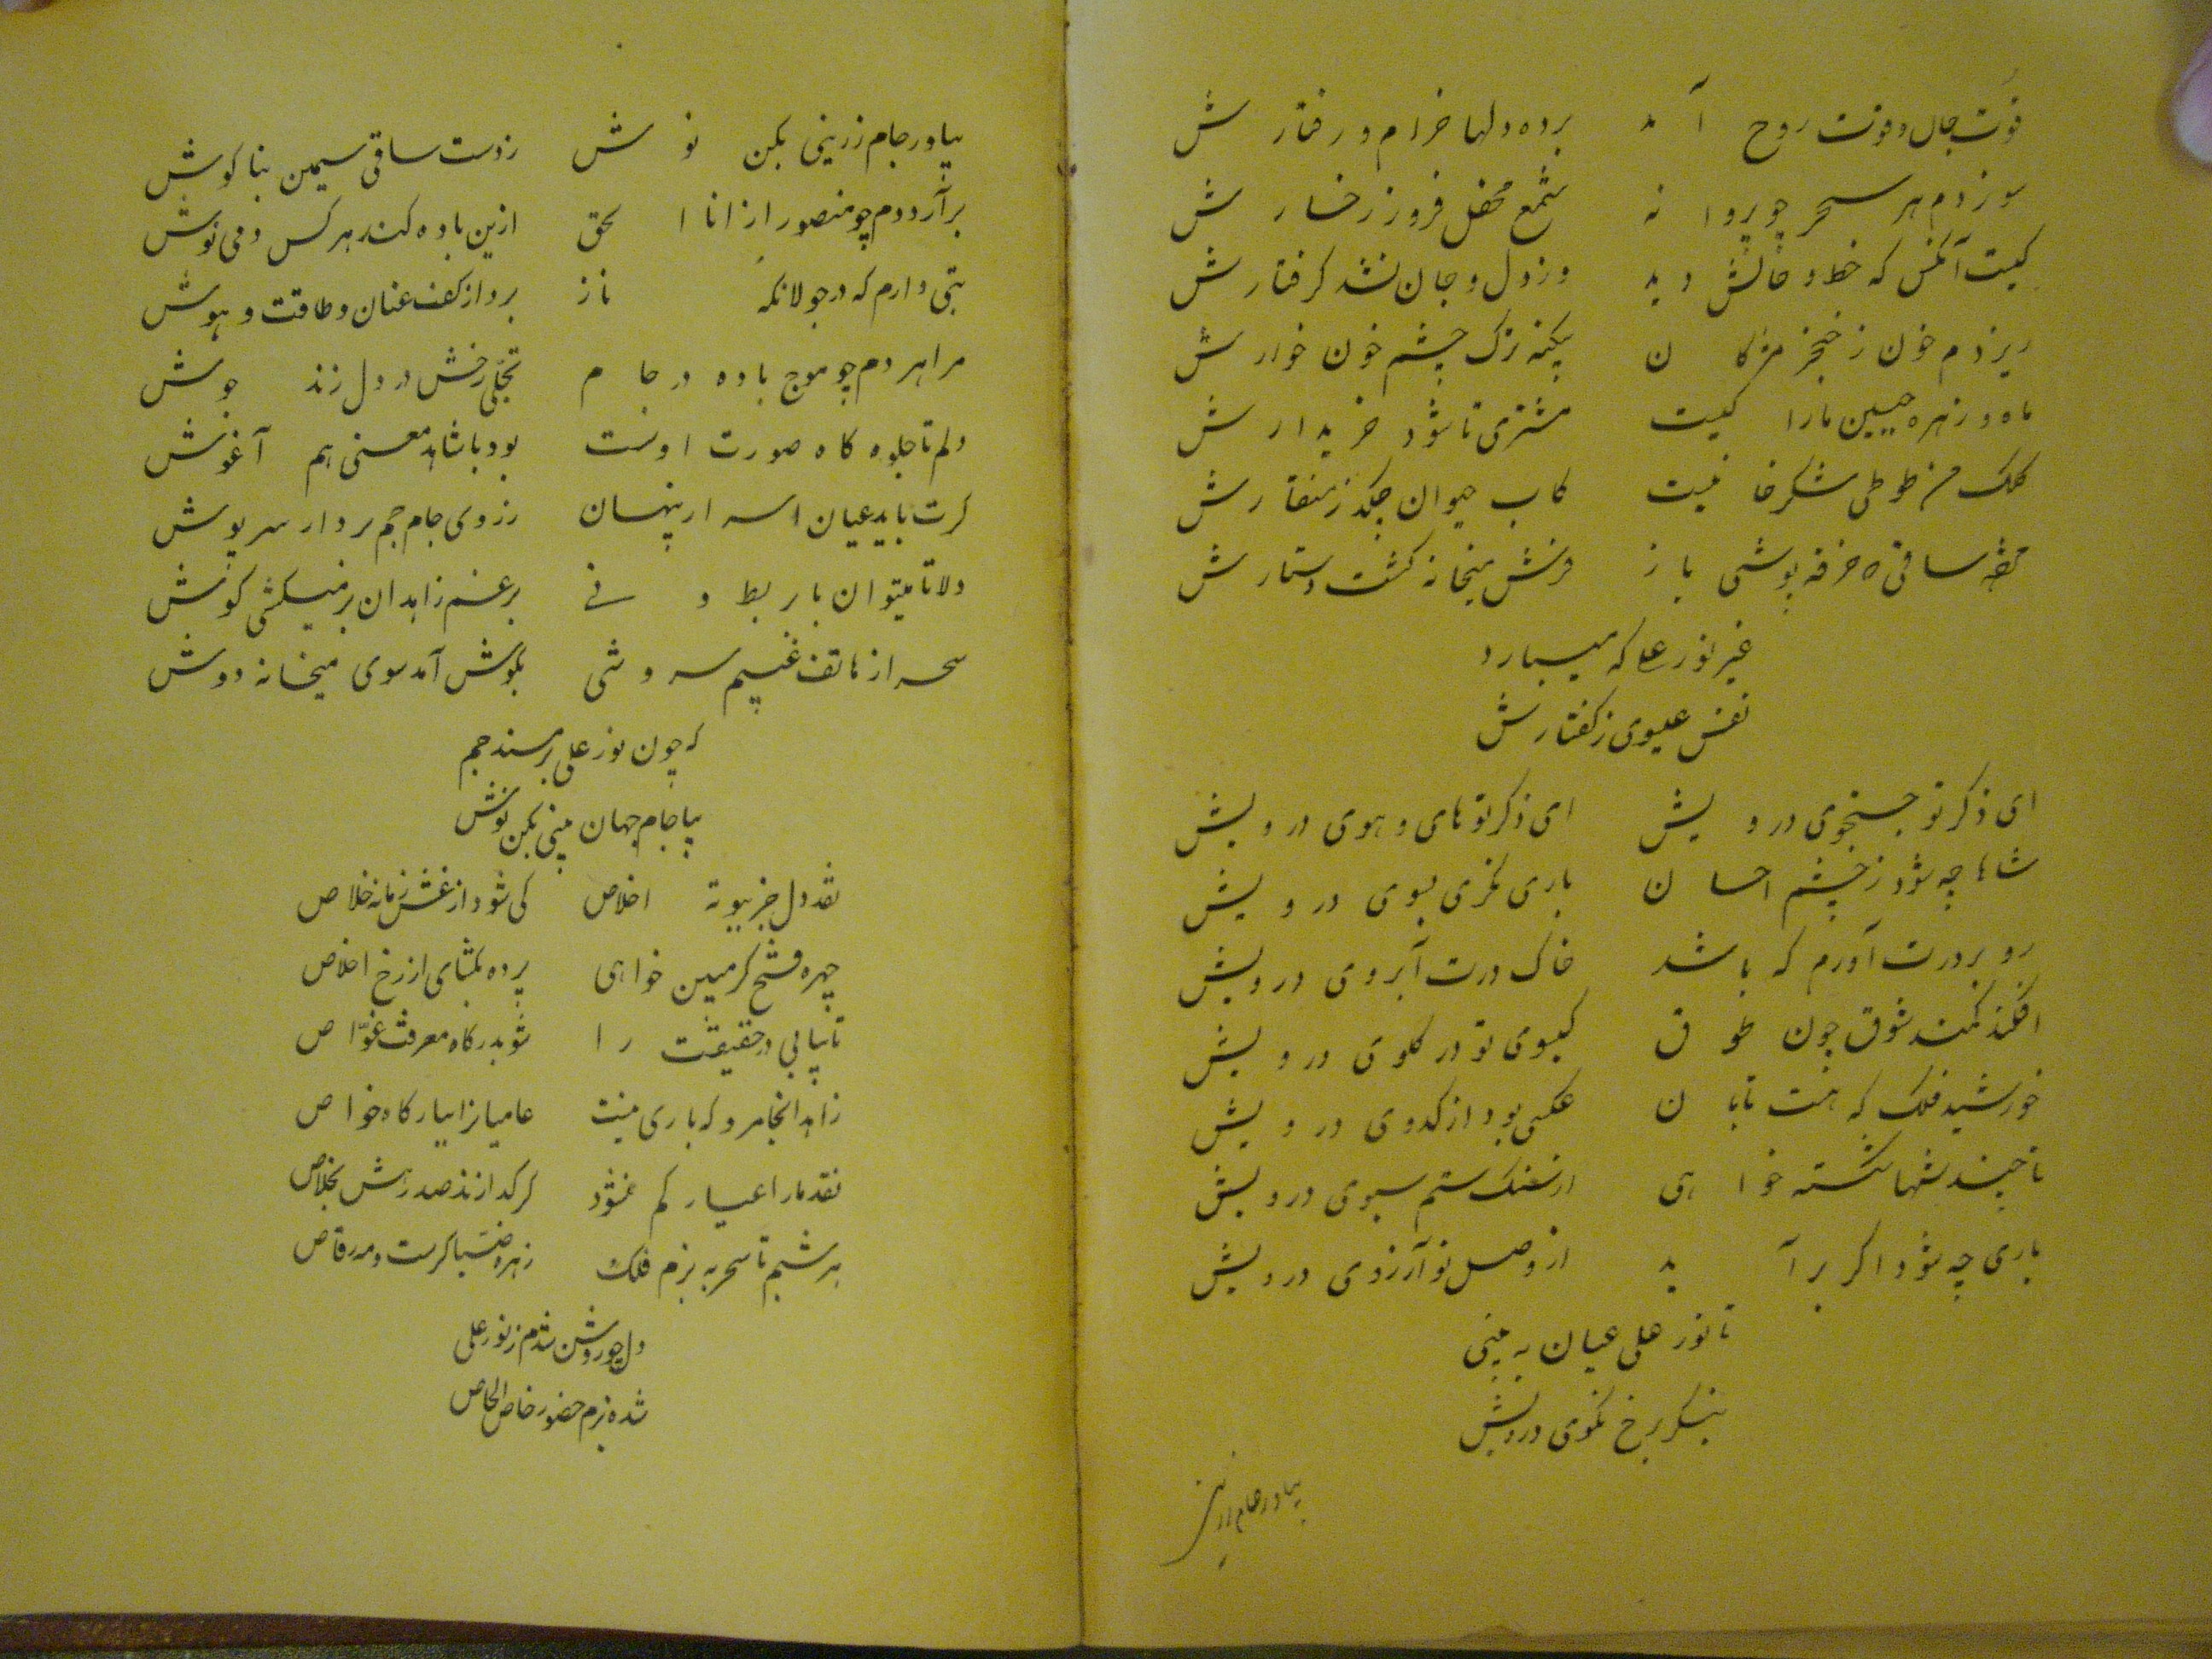 قوت جان و قوت روح آمد برده دلها خرام و رفتارش
سوزدم هر سحر چو پروانه شمع محفل فروز رخسارش
کیست آنکس که خط و خالش دید وز دل و جان نشد گرفتارش
ریزدم خون ز خنجر مژگان بیگنه ترک چشم خون خوارش
ماه و زهره جبین مارا کیست مشتری تا شود خریدارش
کلک من طوطی شکرخائیست کاب حیوان چکد ز منقارش
ساقی خرقه پوشی باز فرش میخانه گشت دستارش
غیر نور علی که میبارد
نفس عیسوی ز گفتارش
ای ذکر تو جستجوی درویش ای ذکر تو های و هوی درویش
شاها چه شود ز چشم احسان باری نگری بسوی درویش
رو بر درت آورم که باشد خاک درت آبروی درویش
افکند کمند شوق چون طوق گیسوی تو در گلوی درویش
خورشید فلک که هست تابان عکسی بود از کدوی درویش
تا چند شها شکسته خواهی از سنگ ستم سبوی درویش
باری چه شود اگر برآید از وصل تو آرزوی درویش
تا نور علی عیان به بینی
بنگر برخ نکوی درویش
بیاور جام زرینی
بیاور جام زرینی بکن نوش ز دست ساقی سیمین بناگوش
برآرد دم چو منصور از انا الحق ازین باده کند هر کس دمی نوش
بتی دارم که در جولانگه ناز برد از کف عنان و طاقت و هوش
مرا هر دم چو موج باده در جام تجلی رخش در دل زند جوش
دلم تا جلوه گاه صورت اوست بود با شاهد معنی هم آغوش
گرت باید عیان اسرار پنهان ز روی جام جم بردار سرپوش
دلا تا میتوان با ربط و نی برغم زاهدان بر میکشی کوش
سحر از هاتف غیبم سروشی بگوش آمد سوی میخانه دوش
که چون نور علی بر مسند جم
بیا جام جهان بینی بکن نوش
نقد دل جز ببوته اخلاص کی شود از غش زمانه خلاص
چهره فتح گر مبین خواهی پرده بگشای از رخ اخلاص
تا بیابی در حقیقت را شو بدرگاه معرفت غواص
زاهد انجا مرو که باری نیست عامیانرا ببارگاه خواص
نقد مارا عیار کم نشود گر گدازند صد رهش بخلاص
هر شبم تا سحر به بزم فلک زهره ضیاگرست و مه رقاص
دل چو روشن شدم ز نور علی
شده بزم حضور خاص الخاص